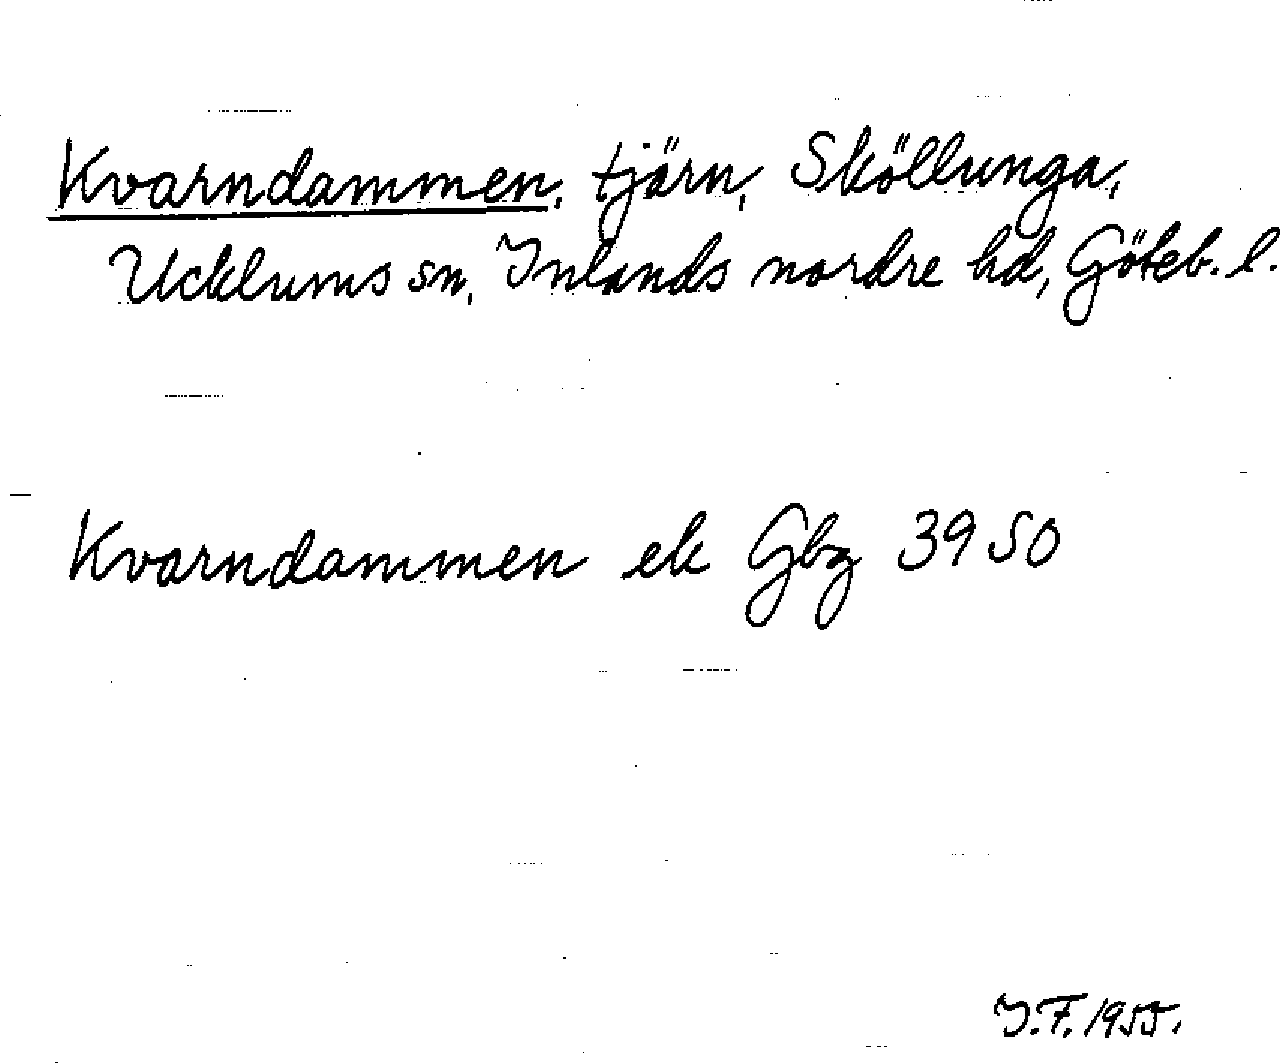 Kvarndammen, tjärn, Sköllunga,
Ucklums sn, Inlands nordre hd, Göteb. l.
Kvarndammen ek Gbg 3950
I.F. 1955.